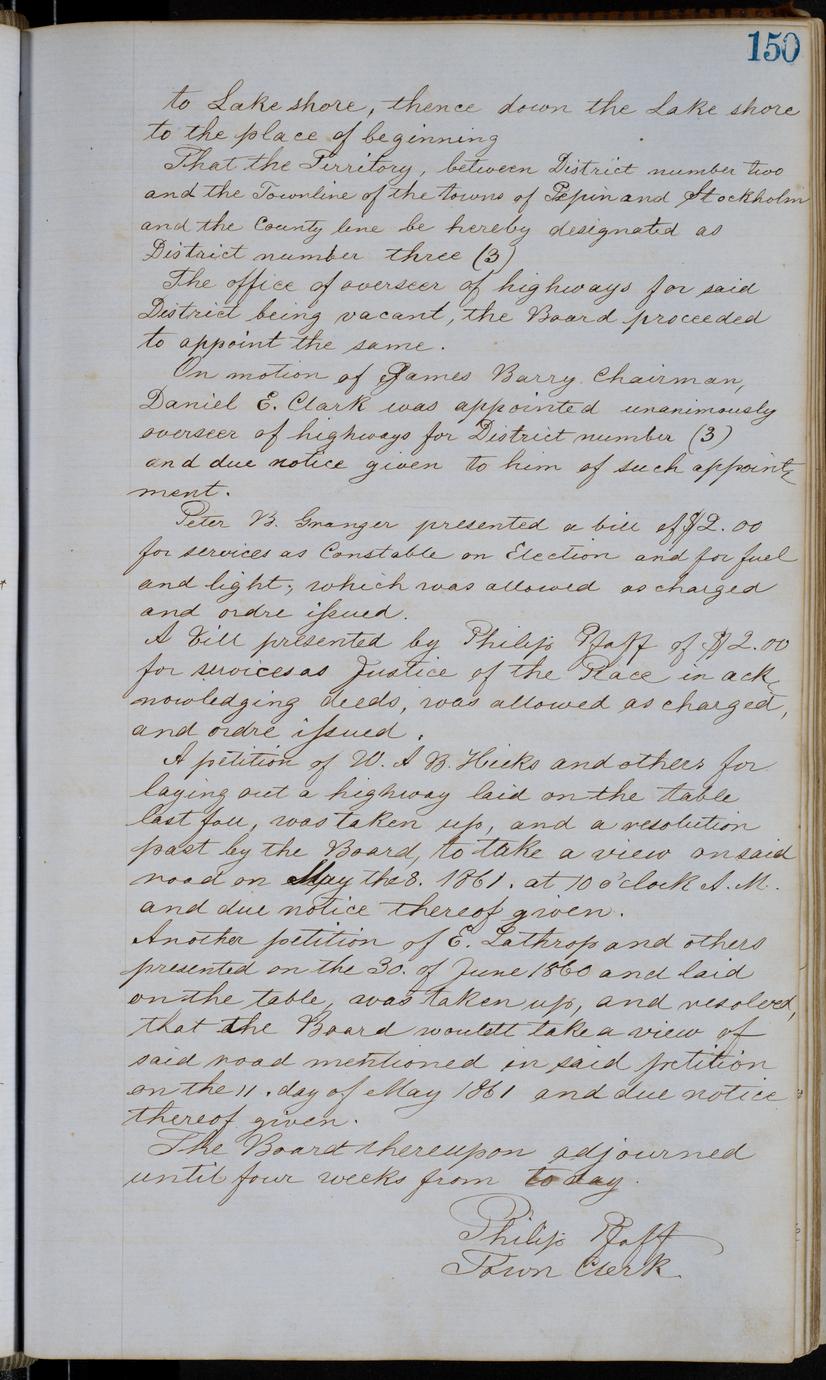 150
to Lake shore, thence down the Lake shore
to the place of beginning
That the Territory, between District number two
and the Townline of the towns of Pepin and Stockholm
and the County line be hereby designated as
District number three (3)
The office of overseer of highways for said
District being vacant, the Board proceeded
to appoint the same.
On motion of James Barry Chairman,
Daniel E. Clark was appointed unanimously
overseer of highways for District number (3)
and due notice given to him of such appoint
ment.
Peter B. Granger presented a bill of $2.00
for services as Constable on Election and for fuel
and light, which was allowed as charged
and ordre issued.
A bill presented by Philip Pfaff of $2.00
for services as Justice of the Peace in ack
nowledging deeds, was allowed as charged,
and ordre issued.
A petition of W. A B. Hicks and others for
laying out a highway laid on the table
last fall, was taken up, and a resolution
past by the Board, to take a view on said
road on May the 8. 1861. at 10 o'clock A. M.
and due notice thereof given.
Another petition of E. Lathrop and others
presented on the 30. of June 1860 and laid
on the table, was taken up, and resolved,
that the Board would take a view of
said road mentioned in said petition
on the 11. day of May 1861 and due notice
thereof given.
The Board thereupon adjourned
until four weeks from to day.
Philip Pfaff
Town Clerk